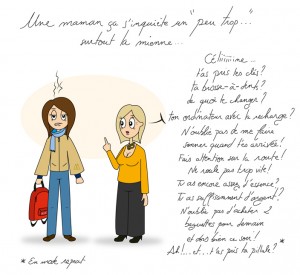 Une maman ça s'inquiète un "peu trop"...
surtout la mienne...
Céliiiiiine...
t'as pris tes clés?
ta brosse-à-dent?
de quoi te changer?
ton ordinateur avec la recharge?
N'oublie pas de me faire
sonner quand t'es arrivée!
Fais attention sur la route!
Ne roule pas trop vite!
Tu as encore assez d'essence?
Tu as suffisamment d'argent?
N'oublie pas d'acheter 2
baguettes pour demain
et dors bien ce soir!
Ah!...et...t'as pris ta pillule? *
* En mode repeat